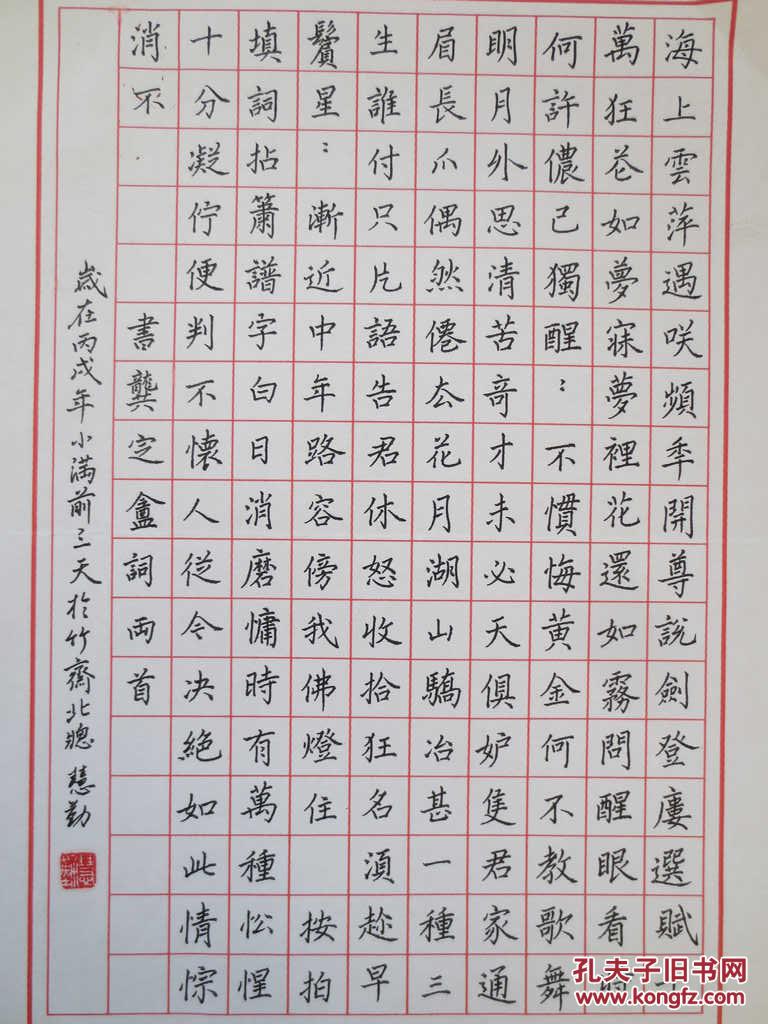 海上雲萍遇咲頻秊開尊說劍登廔選賦十
萬狂花如夢寐夢裡花還如霧問醒眼看
何許儂已獨醒：不慣悔黃金何不教歌舞
明月外思清苦竒才未必天俱妒隻君家通
眉長爪偶然僊去花月湖山驕冶甚一種三
生誰付只片語告君休怒收拾狂名湏趂早
鬢星：漸近中年路容傍我佛燈住 按拍
填詞拈簫譜字白日消磨慵時有萬種忪惺
十分凝佇便判不懷人從今决絕如此情悰
消不 書龔定盦詞両首
歲在丙戌年小满前三天於竹齋北牕 慧勤
慧勤
孔夫子旧书网
www.kongfz.com